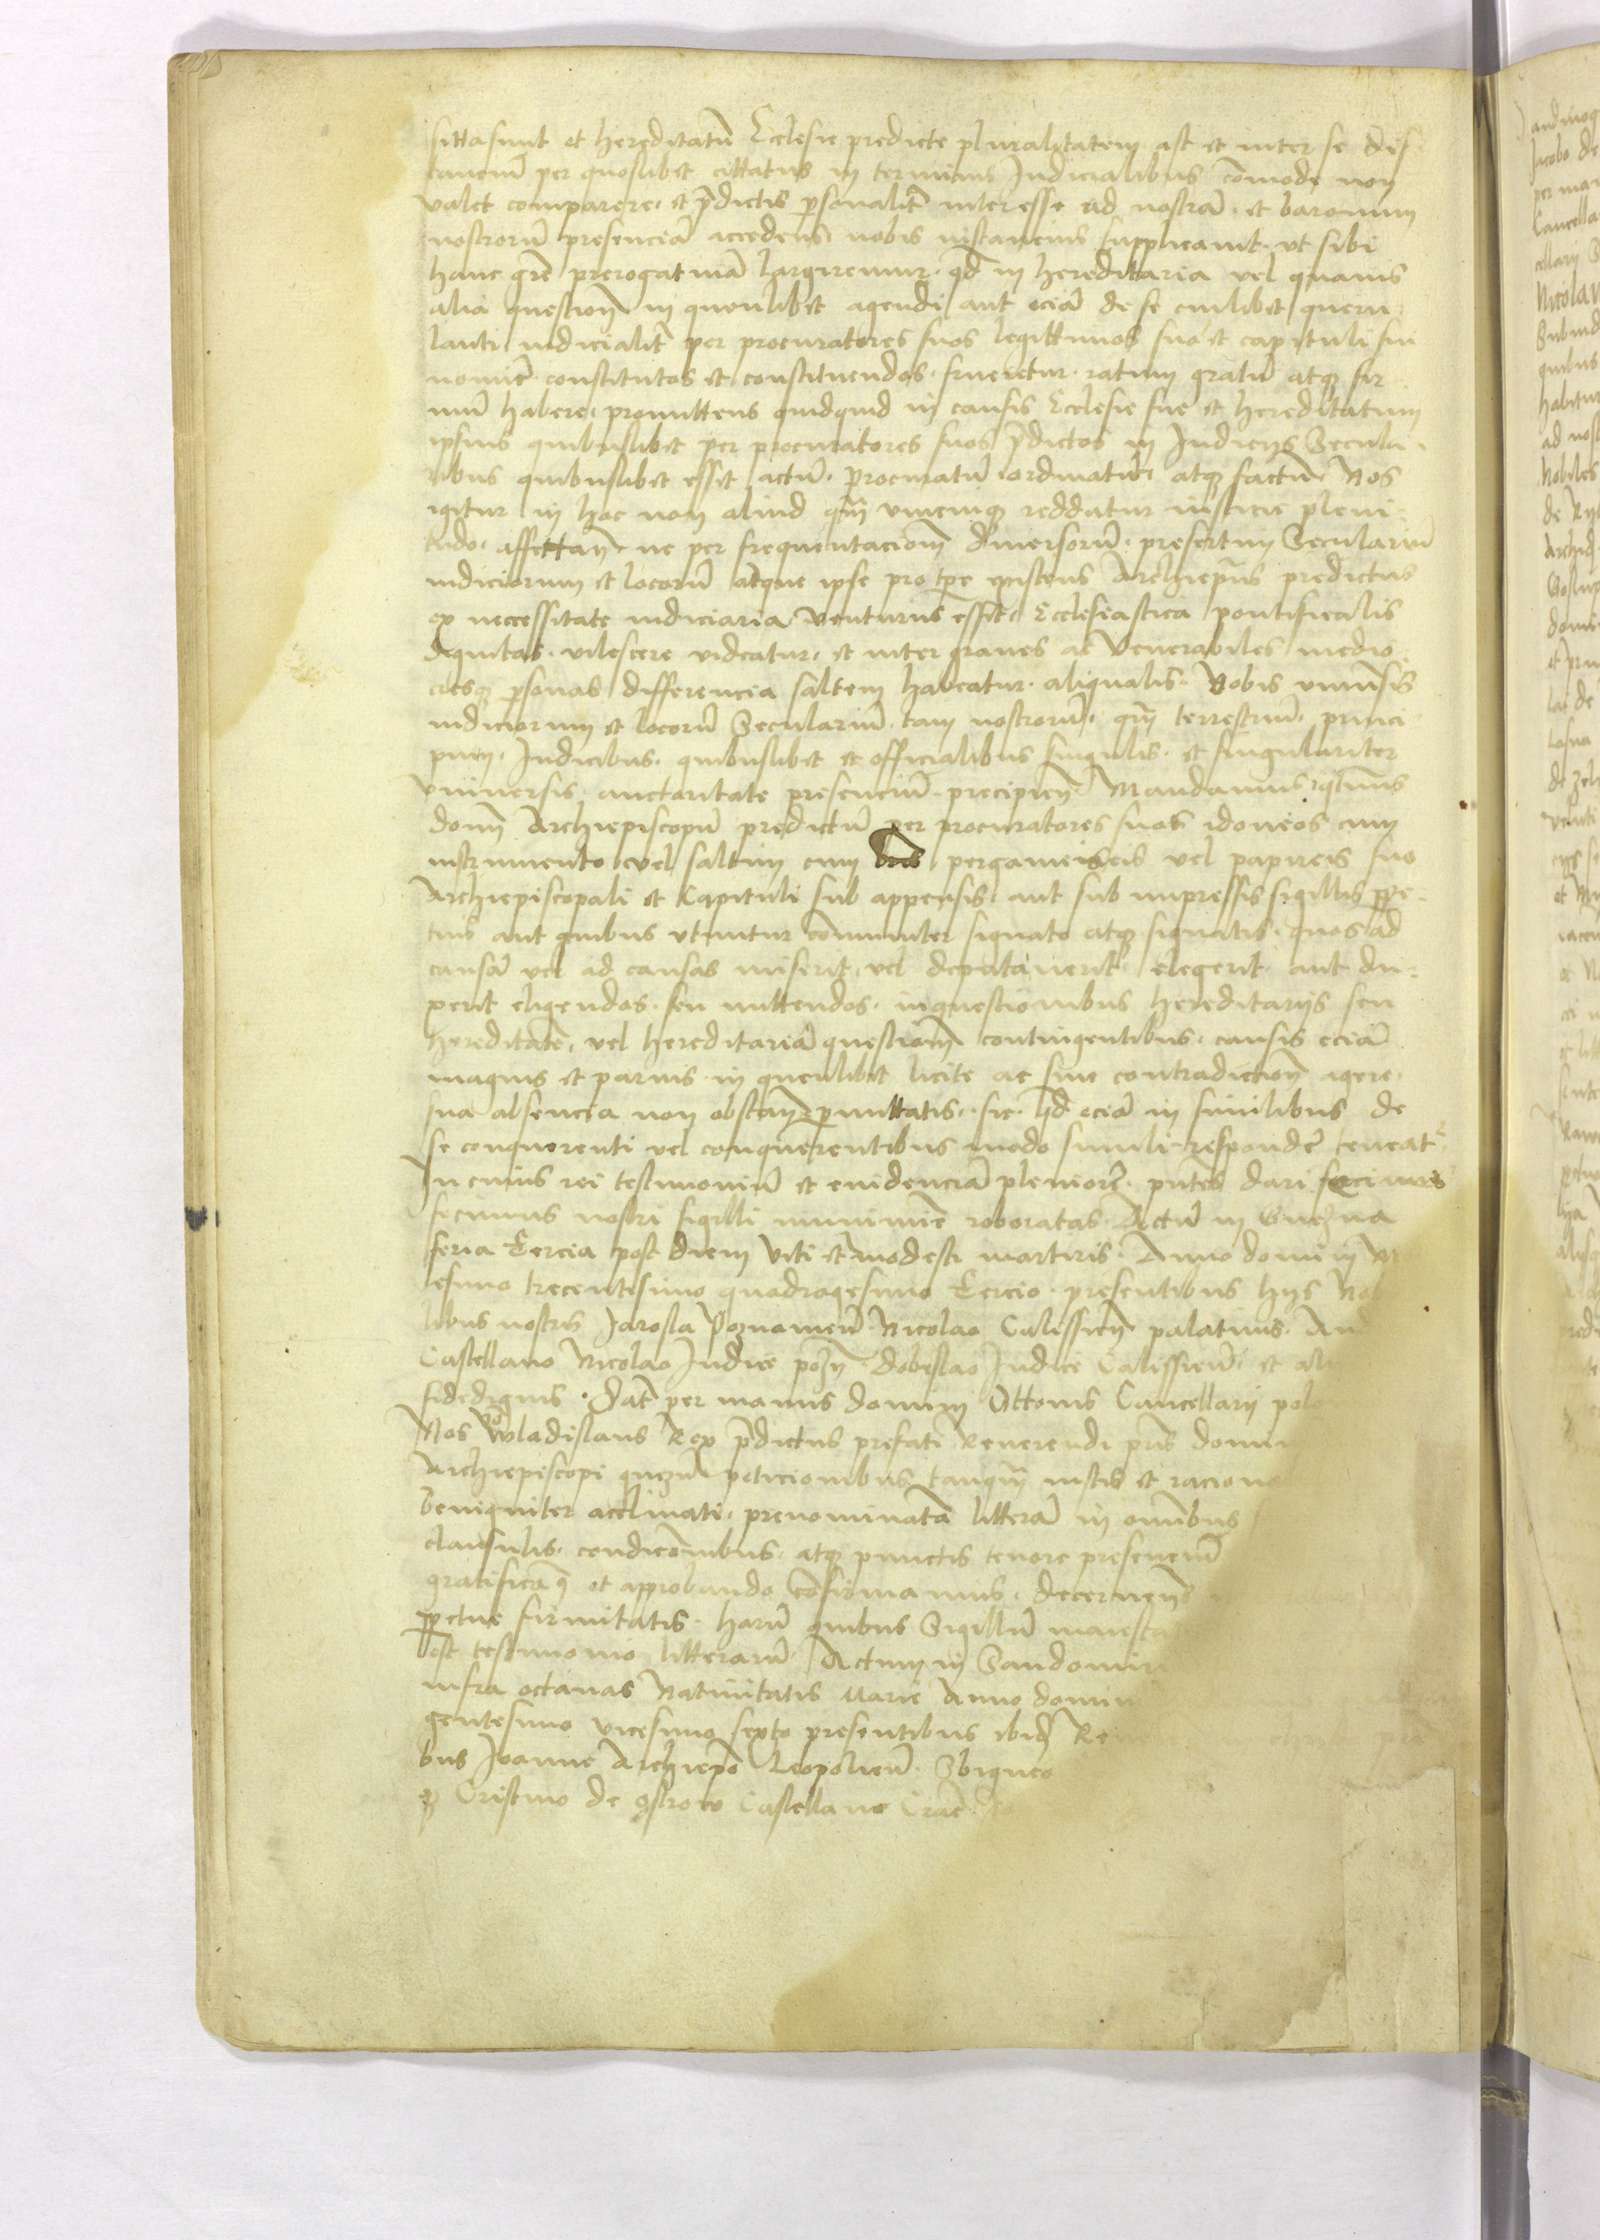 sitta sunt et hereditatū Ecclesie predicte pluralitatem ast et inter se dis
tanciū per quoslibet cittatus in terminis Judicialibus cōmode non
valet comparere. et p̄dictis ꝑsonalit̄ interesse ad nostrā. et baronum
nostrorū presenciā accedens nobis instancius supplicavit. ut sibi
hanc grē prerogativā largiremur. qd̄ in hereditaria vel quavis
alia question̄ in quemlibet agendi aut eciā de se cuilibet queru
lanti iudicialit̄ per procuratores suos legittimos suo et capituli sui
nomīe constitutos et constituendos. frueretur. ratum gratū atqꝫ fir
mū habere. promittens quidquid in causis Ecclesie sue et hereditatum
ipsius quibuslibet per procuratores suos p̄dictos in Judicijs Secula
ribus quibuslibet esset actū. procuratū ordinatū. atqꝫ factū. Nos
igitur in hoc non aliud qm̄ unicuiqꝫ reddatur iusticie pleni
tudo. affettan̄. ne per frequentacionē diversorū. presertim Seculariū
iudiciorum et locorū atque ipse pro tp̄e existens Archiep̄us predictus
ex neccessitate iudiciaria venturus esset. Ecclesiastica pontificalis
dignitas. vilescere videatur. et inter graves ac Venerabiles medio
cresqꝫ ꝑsonas differencia saltem habeatur. aliqualis. Vobis univsis
iudiciorum et locorū Seculariū. tam nostrorū. qm̄ terrestriū. princi
pum. Judicibus. quibuslibet et officialibus singulis. et singulariter
universis. auctoritate presenciū. precipien̄. Mandamus. qtenus
donm̄ Archiepiscopū predictū per procuratores suos idoneos cum
instrumento vel saltim cum lris pergameneis vel papireis suo
Archiepiscopali et Capituli sub appensis. aut sub impressis sigillis ꝑpe
tuis aut quibus utuntur cōmuniter signato atqꝫ signatis. quos ad
causā vel ad causas miserit. vel deputaverit elegerit aut du
xerit eligendos. seu mittendos. in questionibus hereditarijs seu
hereditatē. vel hereditariā questionē contingentibus. causis eciā
magnis et parvis in quemlibet licite ac sine contradiccion̄ agere.
sua absencia non obstan̄ ꝑmittatis. sic. qd̄ eciā in similibus de
se conquerenti vel conquerentibus modo simili respondē teneat
In cuius rei testimoniū et evidenciā pleniorē. pn̄tes dari fecimus
fecimus nostri sigilli munimīe roboratas. Actū in Gnezna
feria tercia post diem Viti et modesti martiris. Anno domini
lesimo trecentesimo quadragesimo tercio. presentibus hijs
libus nostris Jarosla Poznanien̄. Nicolao Calissien̄ palatinis.
Castellano Nicolao Judice pozn̄. Dobeslao Judice Calissien̄. et
fidedignis. Dat̄ per manus domini Ottonis Cancellarij
Nos Wladislaus Rex p̄dictus prefati Reverendi pris
Archiepiscopi gnezn̄ peticionibus tanqm̄ iustis et
benigniter acclinati. prenominatā litterā in omībus
clausulis. condicōnibus. atqꝫ punctis tenore presenciū
gratificaqꝫ et approbando confirmamus. decernen̄s
ꝑpetue firmitatis. harū quibus Sigillū
est testimonio litterarū. Actum in
infra octavas Nativitatis Marie Anno
gentesimo vicesimo sexto presentibus ibid̄
bus Joanne Archiepō Leopolien̄. Sbigneo
Cristino de ostrow Castellano Crac̄